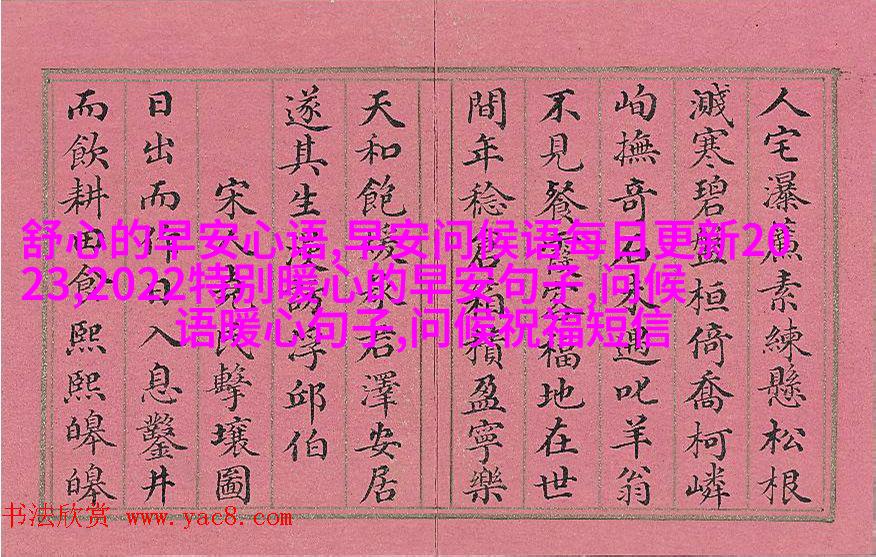 人宅瀑簾素練懸松根
濺寒碧盤桓倚喬柯嶙
峋撫奇石未遇叱羊翁
不見餐霞客福地在世
間年稔倉箱積盈寧樂
天和飽澤安居
遂其生漫訪浮邱伯
宋人堯民擊壤圖
日出而作日入息鑿井
而飲耕田食熙熙皞皞
舒心的早安心语,早安问候语每日更新20
23,2022特别暖心的早安句子,问候
语暖心句子,问候祝福短信
书法欣赏 www.yac8.com